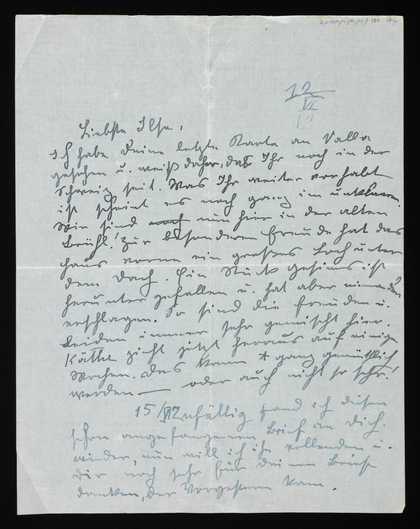 12
VI
Liebste Ilse,
Ich habe Deine letzte Karte an Valla
gesehen u. weiß daher, daß Ihr noch in der
Schweiz seit. Was Ihr weiter vorhabt
ist scheint es noch ganz im unklaren.
Wir sind noch nun hier in der alten
Zur besonderen Freude hat das
Haus vorne ein großes Loch unter
dem Dach. Ein Stück Gesims ist
herunter gefallen u. hat aber niemanden
erschlagen. So sind die Freuden u.
Leiden immer sehr gemischt hier.
Käthe zieht jetzt heraus auf einige
Wochen. Das kann ganz gemütlich
werden — oder auch nicht so sehr!
15/VI Zufällig fand ich diesen
schon angefangenen Brief an Dich
wieder, nun will ich ihn vollenden u.
Dir noch sehr für deinen Brief
danken, der vorgestern kam.